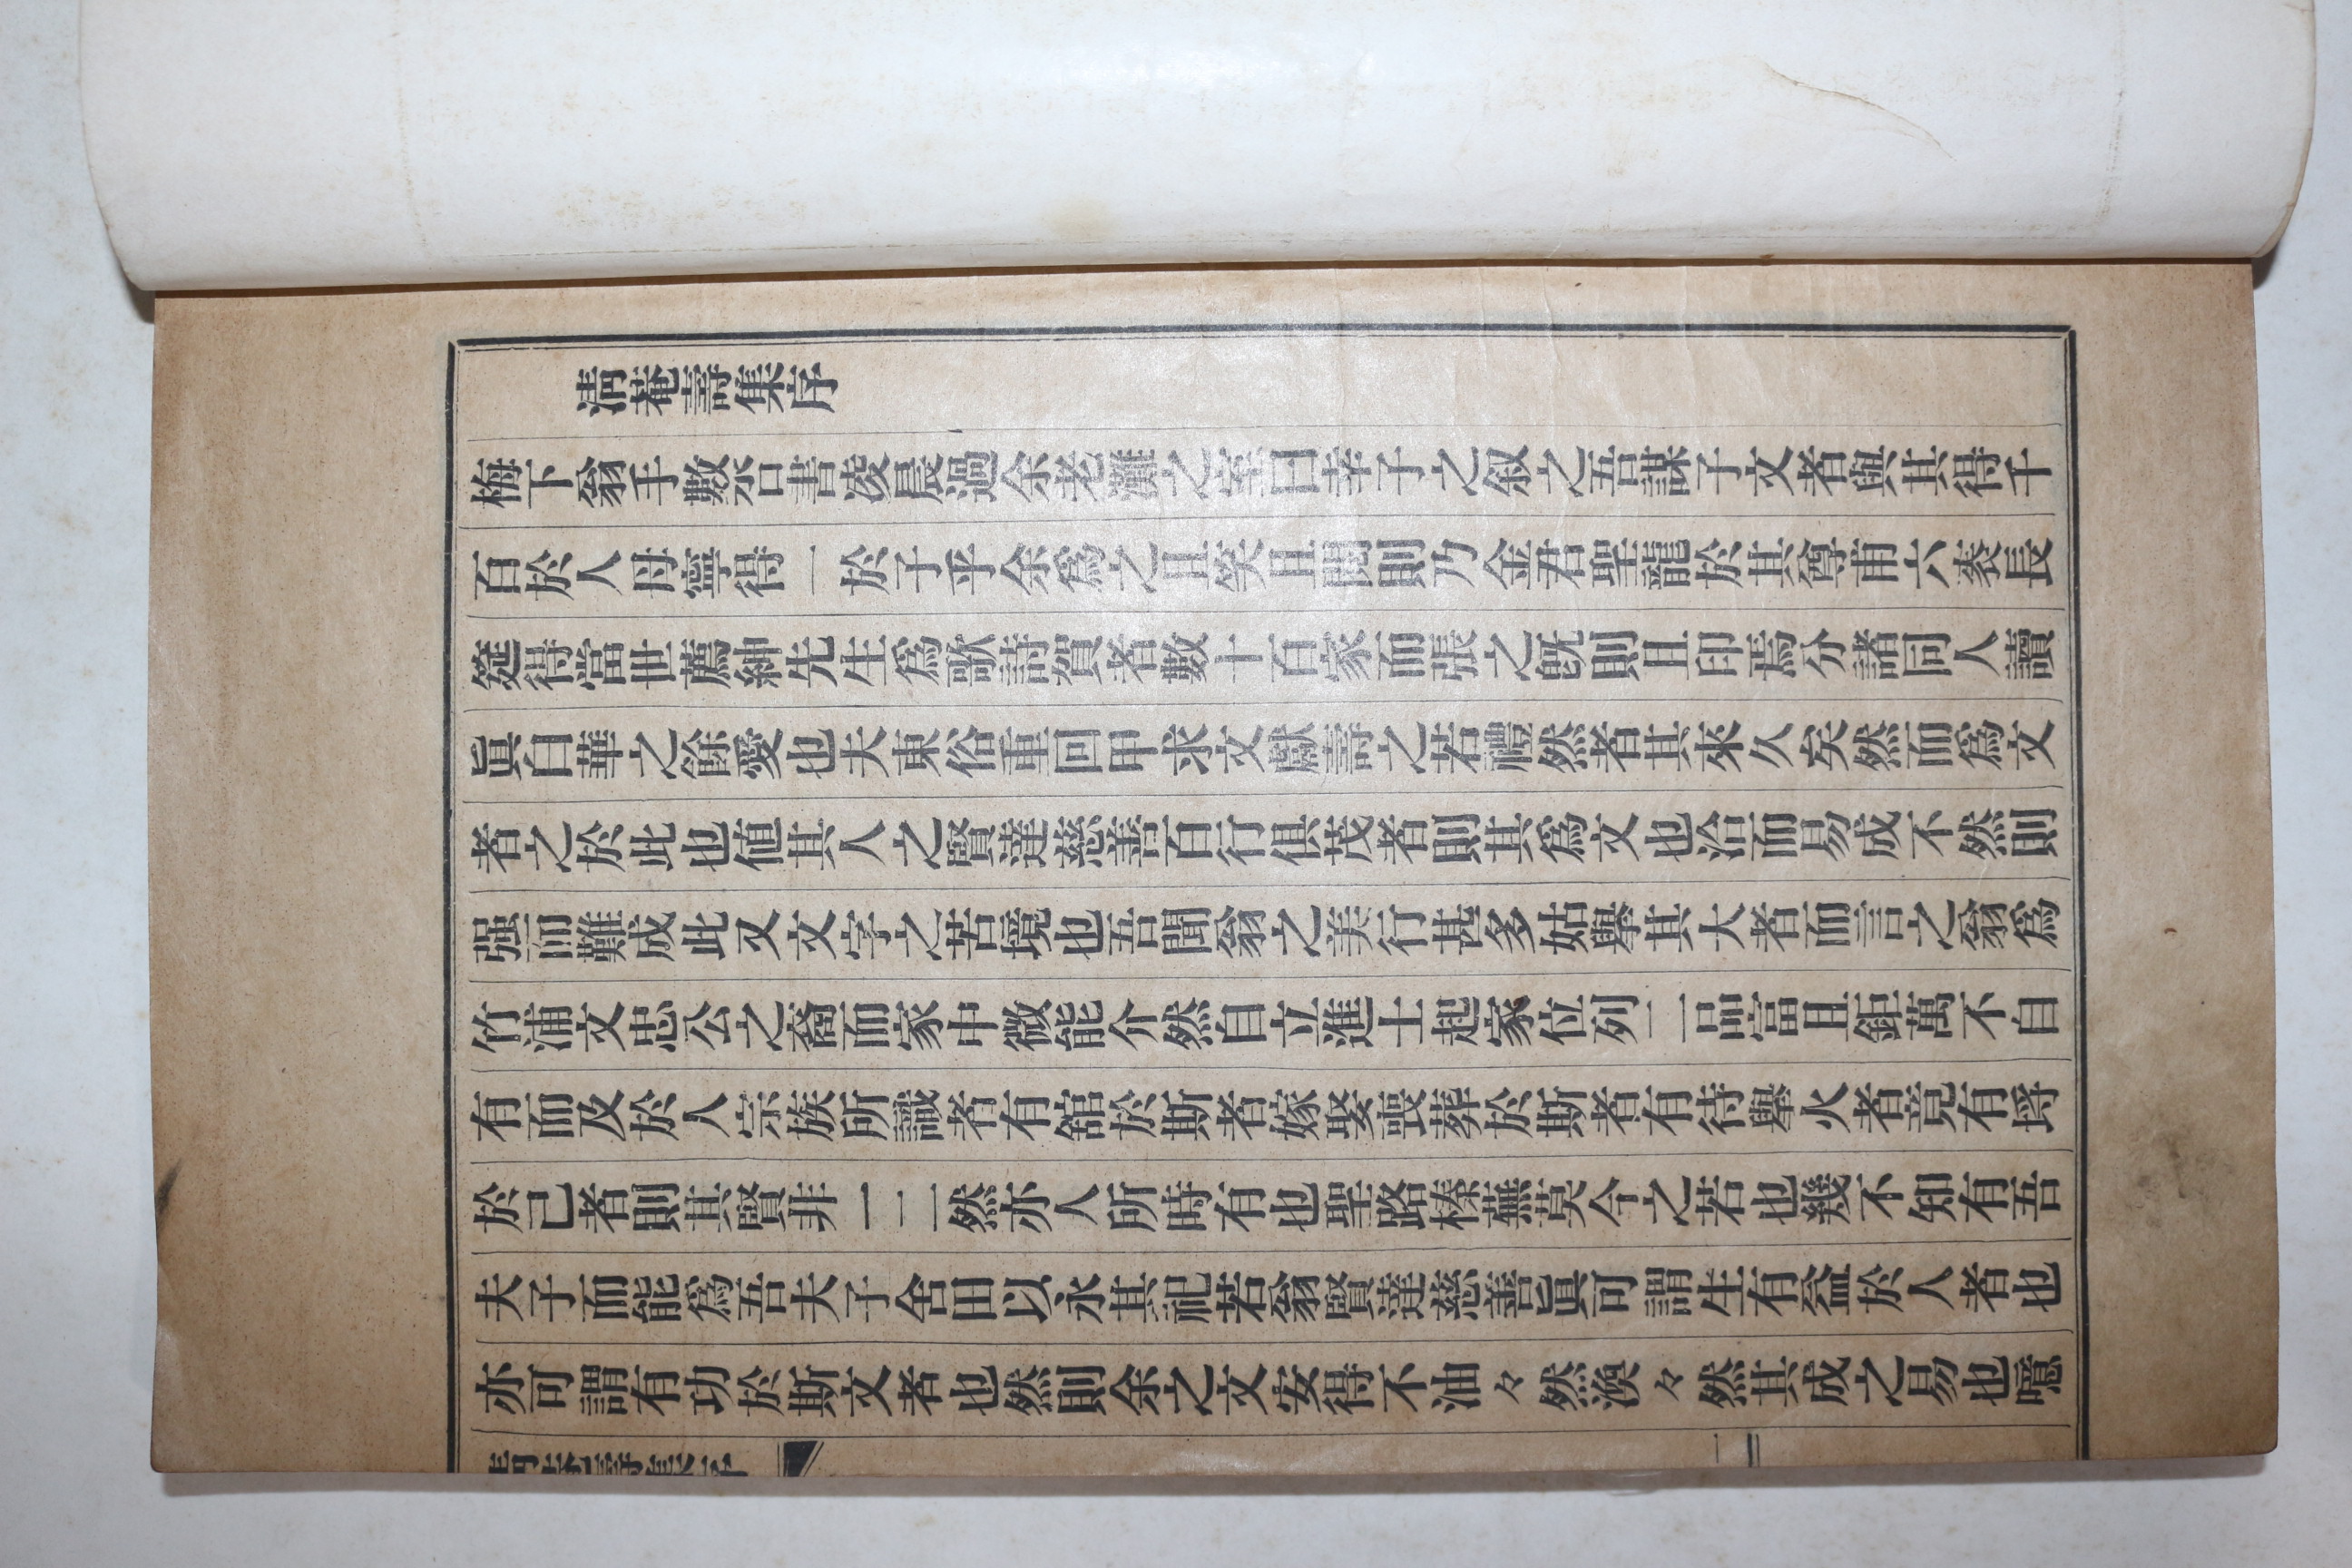 清菴壽集序
梅下翁手數沓書凌晨過余老灘之榘曰幸子之叙之吾謀子文者與其得千
百於人毋寧得一於子乎余爲之且笑且閱則乃金君聖龍於其尊甫六袠長
筵得當世薦紳先生爲歌詩賀者數十百家而張之旣則且印焉分諸同人讀
眞白華之餘愛也夫東俗重回甲求文獻壽之若禮然者其來久矣然而爲文
者之於此也値其人之賢達慈善百行俱茂者則其爲文也洽而易成不然則
强而難成此又文字之苦境也吾聞翁之美行甚多姑擧其大者而言之翁爲
竹浦文忠公之裔而家中微能介然自立進士起家位列二品富且鉅萬不自
有而及於人宗族所識者有舘於斯者嫁娶喪葬於斯者有待擧火者竟有埒
於己者則其賢非一二然亦人所時有也聖路榛蕪莫今之若也幾不知有吾
夫子而能爲吾夫子舍田以永其祀若翁賢達慈善眞可謂生有益於人者也
亦可謂有功於斯文者也然則余之文安得不油々然渙々然其成之易也噫
清菴壽集序 一